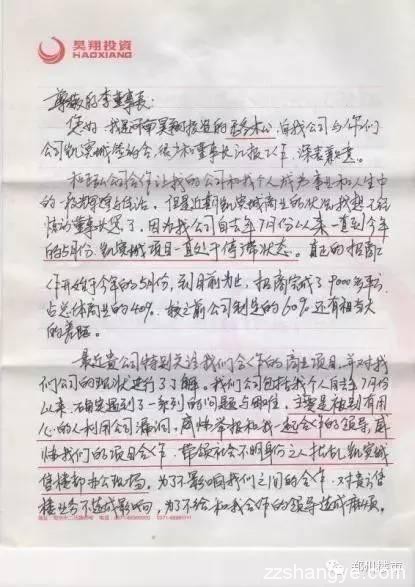 昊翔投資
HAOXIANG
尊敬的李董事长：
您好，我是河南昊翔投资的 自我公司与你们
公司凯宾城签约合 很少和董事长汇报工作，深表歉意。
和贵公司合作让我的公司和我个人成为事业和人生中
的一段辉煌与传洁。但是近期凯宾城商业的状况，我想
董事长 了，因为我公司自去年7月份以来一直到今年
的5月份，凯宾城项目一直处于停滞状态。真正的招商工
作开始于今年的5月份，到目前为止，招商完成了9000多平方
占总体商业的40%。较之前公司制定的60%还有相当大
的差距。
最近贵公司特别关注我们合作的商业项目，并对我
们公司的现状进行了了解。我们公司包括我个人自去年7月份
以来，确实遇到了一系列的问题与困难，主要是被别有用
心的人利用公司漏洞，威胁举报和我一起合作的领导，威
胁我们的项目合作，带领社会不明身份之人扰乱凯宾城
售楼部办公现场。为了不影响我们之间的合作，对贵公司售
楼业务不造成影响，为了不给和我合作的领导造成麻烦。
郑州楼市
zzshangye.com